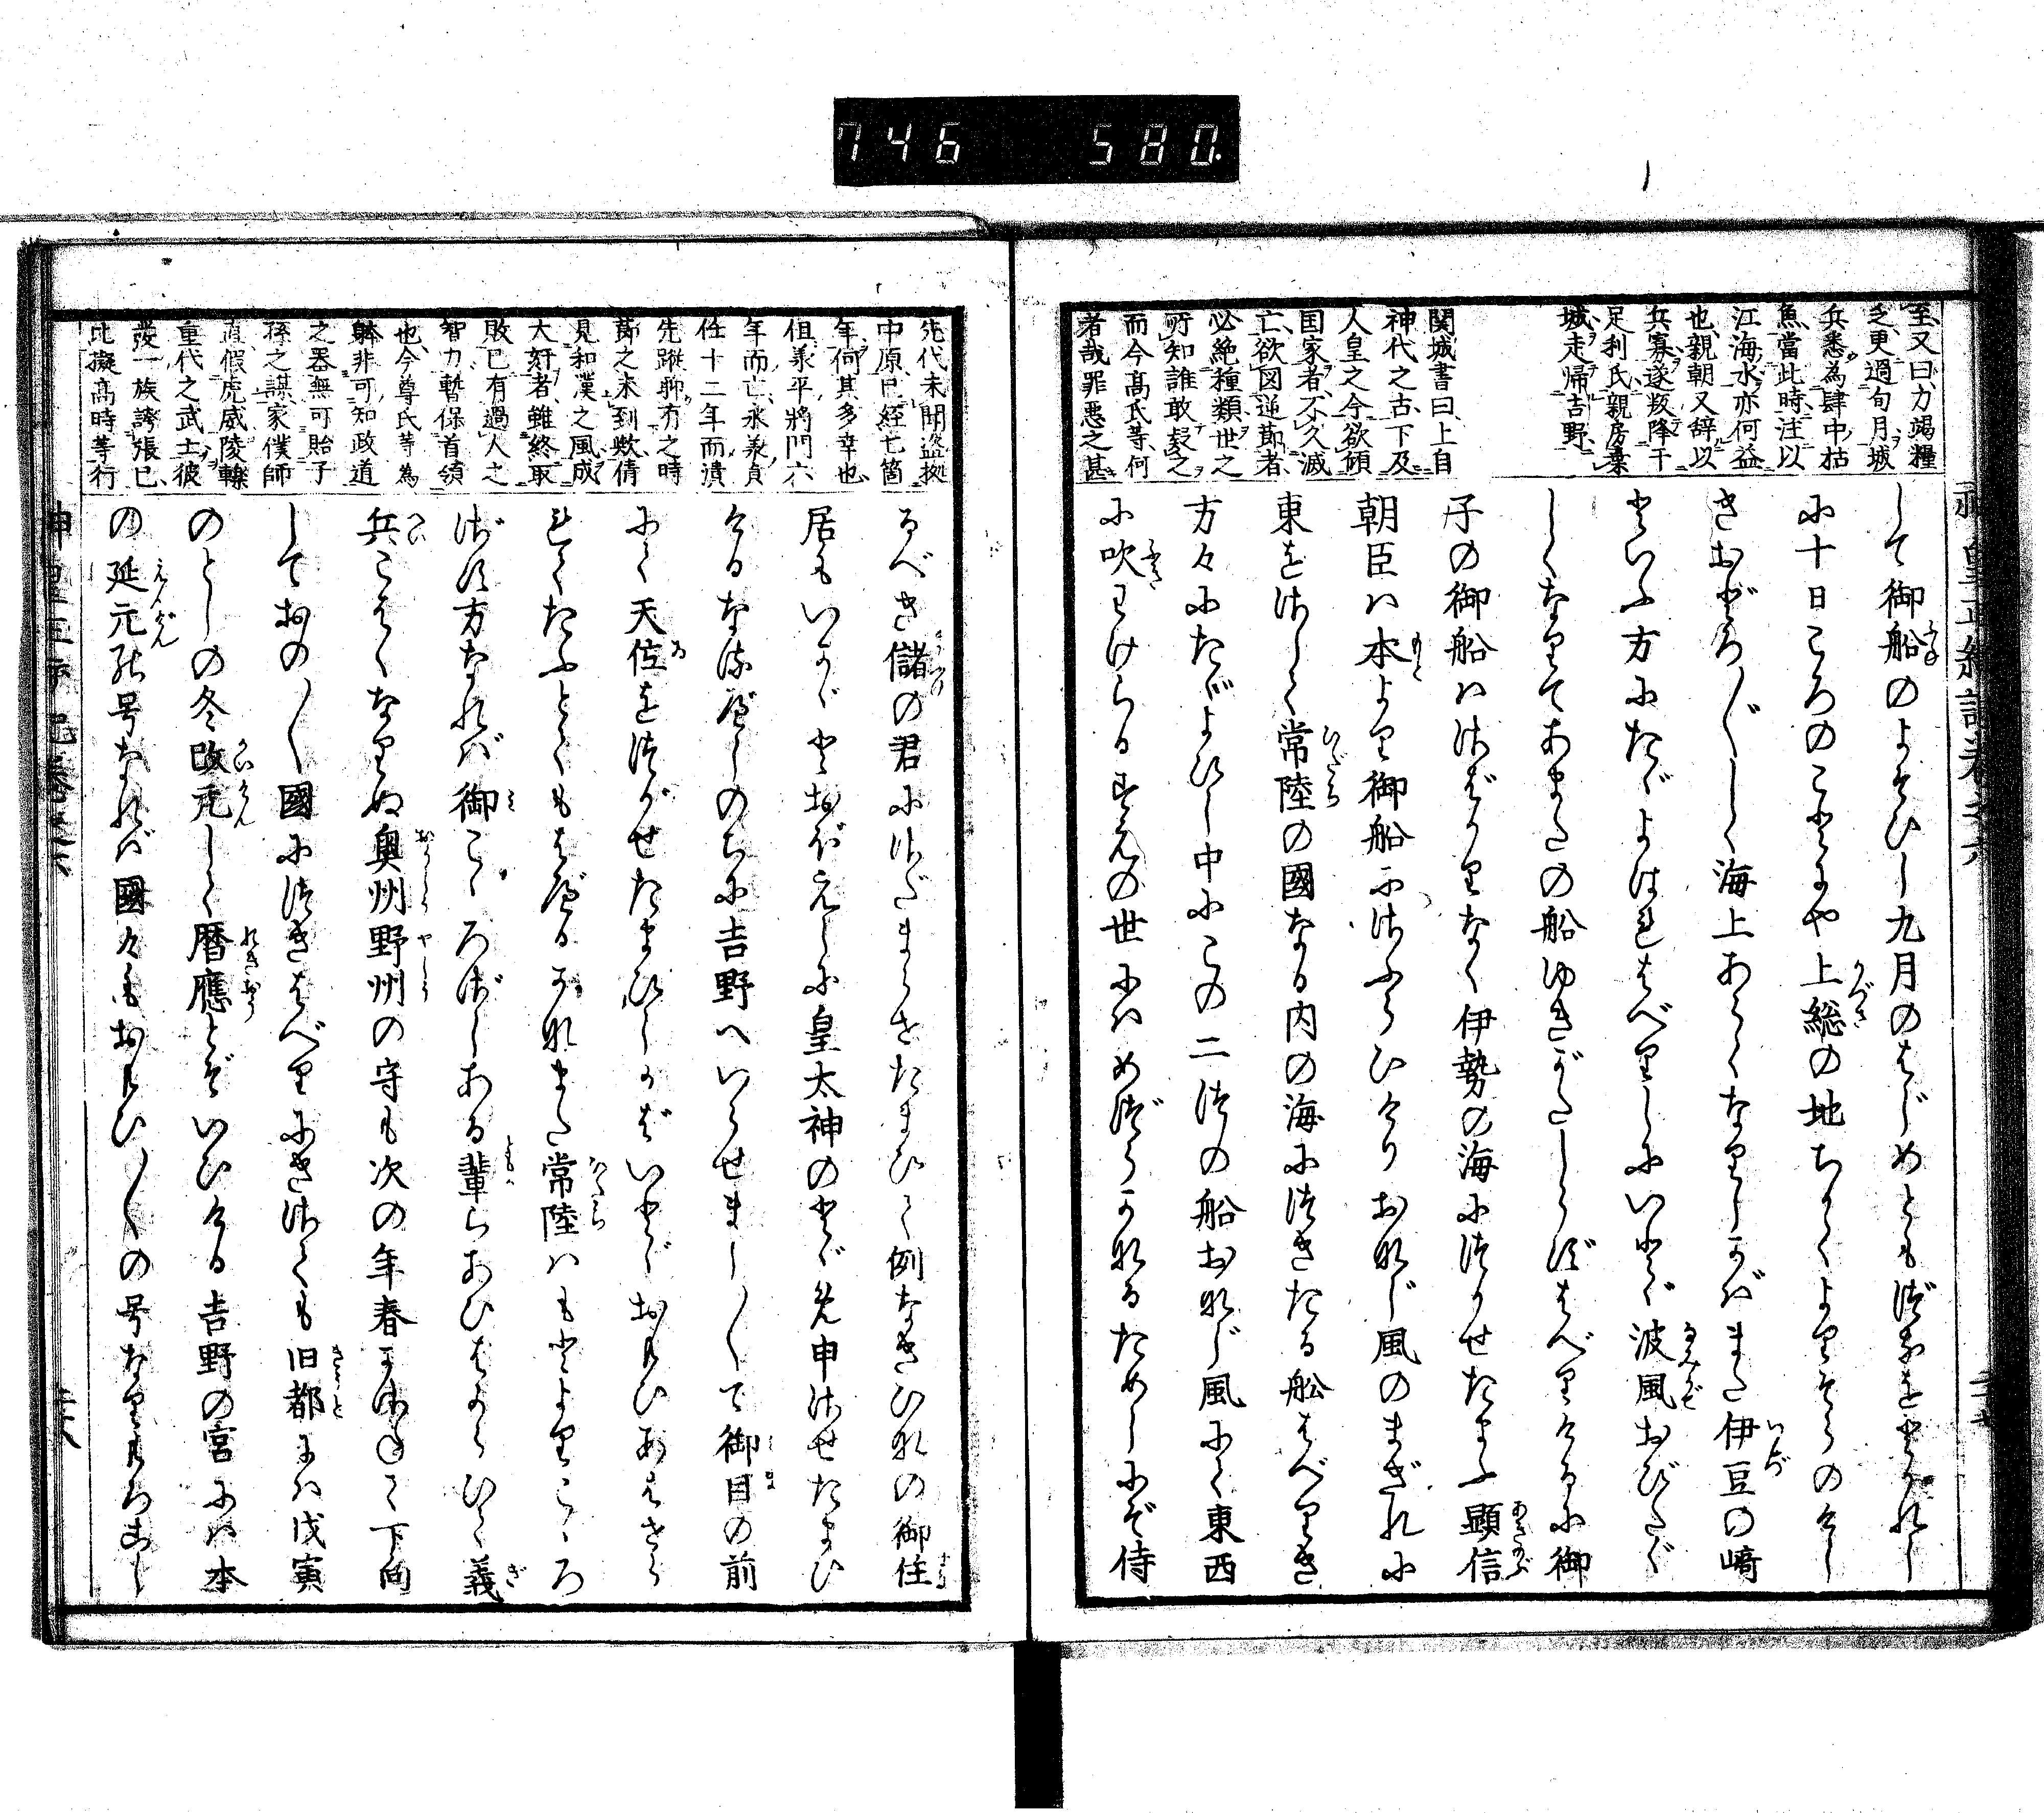 746 580.
至又曰力竭糧
乏更過旬月城
兵悉為肆中枯
魚當此時注以
江海水亦何益
也親朝又辞以
兵寡遂叛降于
足利氏親房棄
城走帰吉野
関城書曰上自
神代之古下及
人皇之今欲傾
国家者不久滅
亡欲図逆莭者
必絶種類世之
所知誰敢疑之
而今高氏等何
者哉罪悪之甚
して御船のよそひし九月のはじめともづなをとかれし
に十日ころのことにや上総の地ちかくよりそらのけし
きおどろ〳〵しく海上あらくなりしかばまた伊豆の﨑
といふ方にたゞよはれはべりしにいとゞ波風おびたゞ
しくなりてあまたの船ゆきがたしらずはべりけるに御
子の御船はさはりなく伊勢の海につかせたまふ顕信
朝臣は本より御船にさふらひけりおなじ風のまぎれに
東をさして常陸の國なる内の海につきたる舩はべりき
方々にたゞよひし中にこの二つの船おなじ風にて東西
に吹わけらるすゑの世にはめづらかなるためしにぞ侍
先代未聞盗拠
中原已経七箇
年何其多幸也
但羕平將門六
年而亡永羕貞
任十二年而潰
先蹤聊有之時
莭之未到歟倩
見和漢之風成
大奸者雖終取
敗已有過人之
智力暫保首領
也今尊氏等為
躰非可知政道
之器無可貽子
孫之謀家僕師
直假虎威陵轢
重代之武士彼
黨一族誇張已
比擬高時等行
るべき儲の君にさだまらせたまひて例なきひなの御住
居もいかゞとおぼえしに皇太神のとゞめ申させたまひ
けるなるべしのちに吉野へいらせまし〳〵て御目の前
にて天位をつがせたまひしかばいとゞおもひあはせら
れてたふとくもはべるかなまた常陸はもとよりこゝろ
ざす方なれば御こゝろざしある輩らあひはからひて義
兵こはくなりぬ奥州野州の守も次の年春かさねて下向
しておの〳〵國につきはべりにきさても旧都には戊寅
のとしの冬改元して暦應とぞいひける吉野の宮には本
の延元の号なれば國々もおもひ〳〵の号なりもろこし